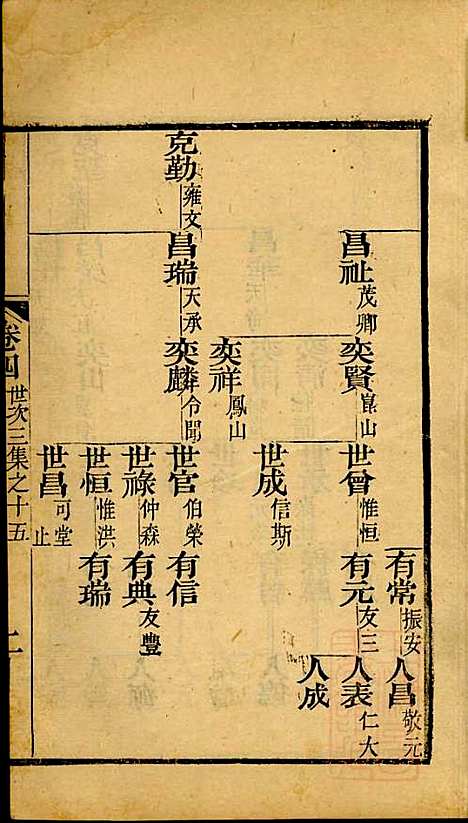 有常振安
人昌敬元
昌祉茂卿
奕賢崑山
世曾惟恒
有元友三
人表仁大
人成
世成信斯
奕祥鳳山
克勤雍文
昌瑞天承
奕麟令聞
世官伯榮
有信
世祿仲森
有典友豐
世恒惟洪
有瑞
世昌可堂
止
卷四 世次三集之十五